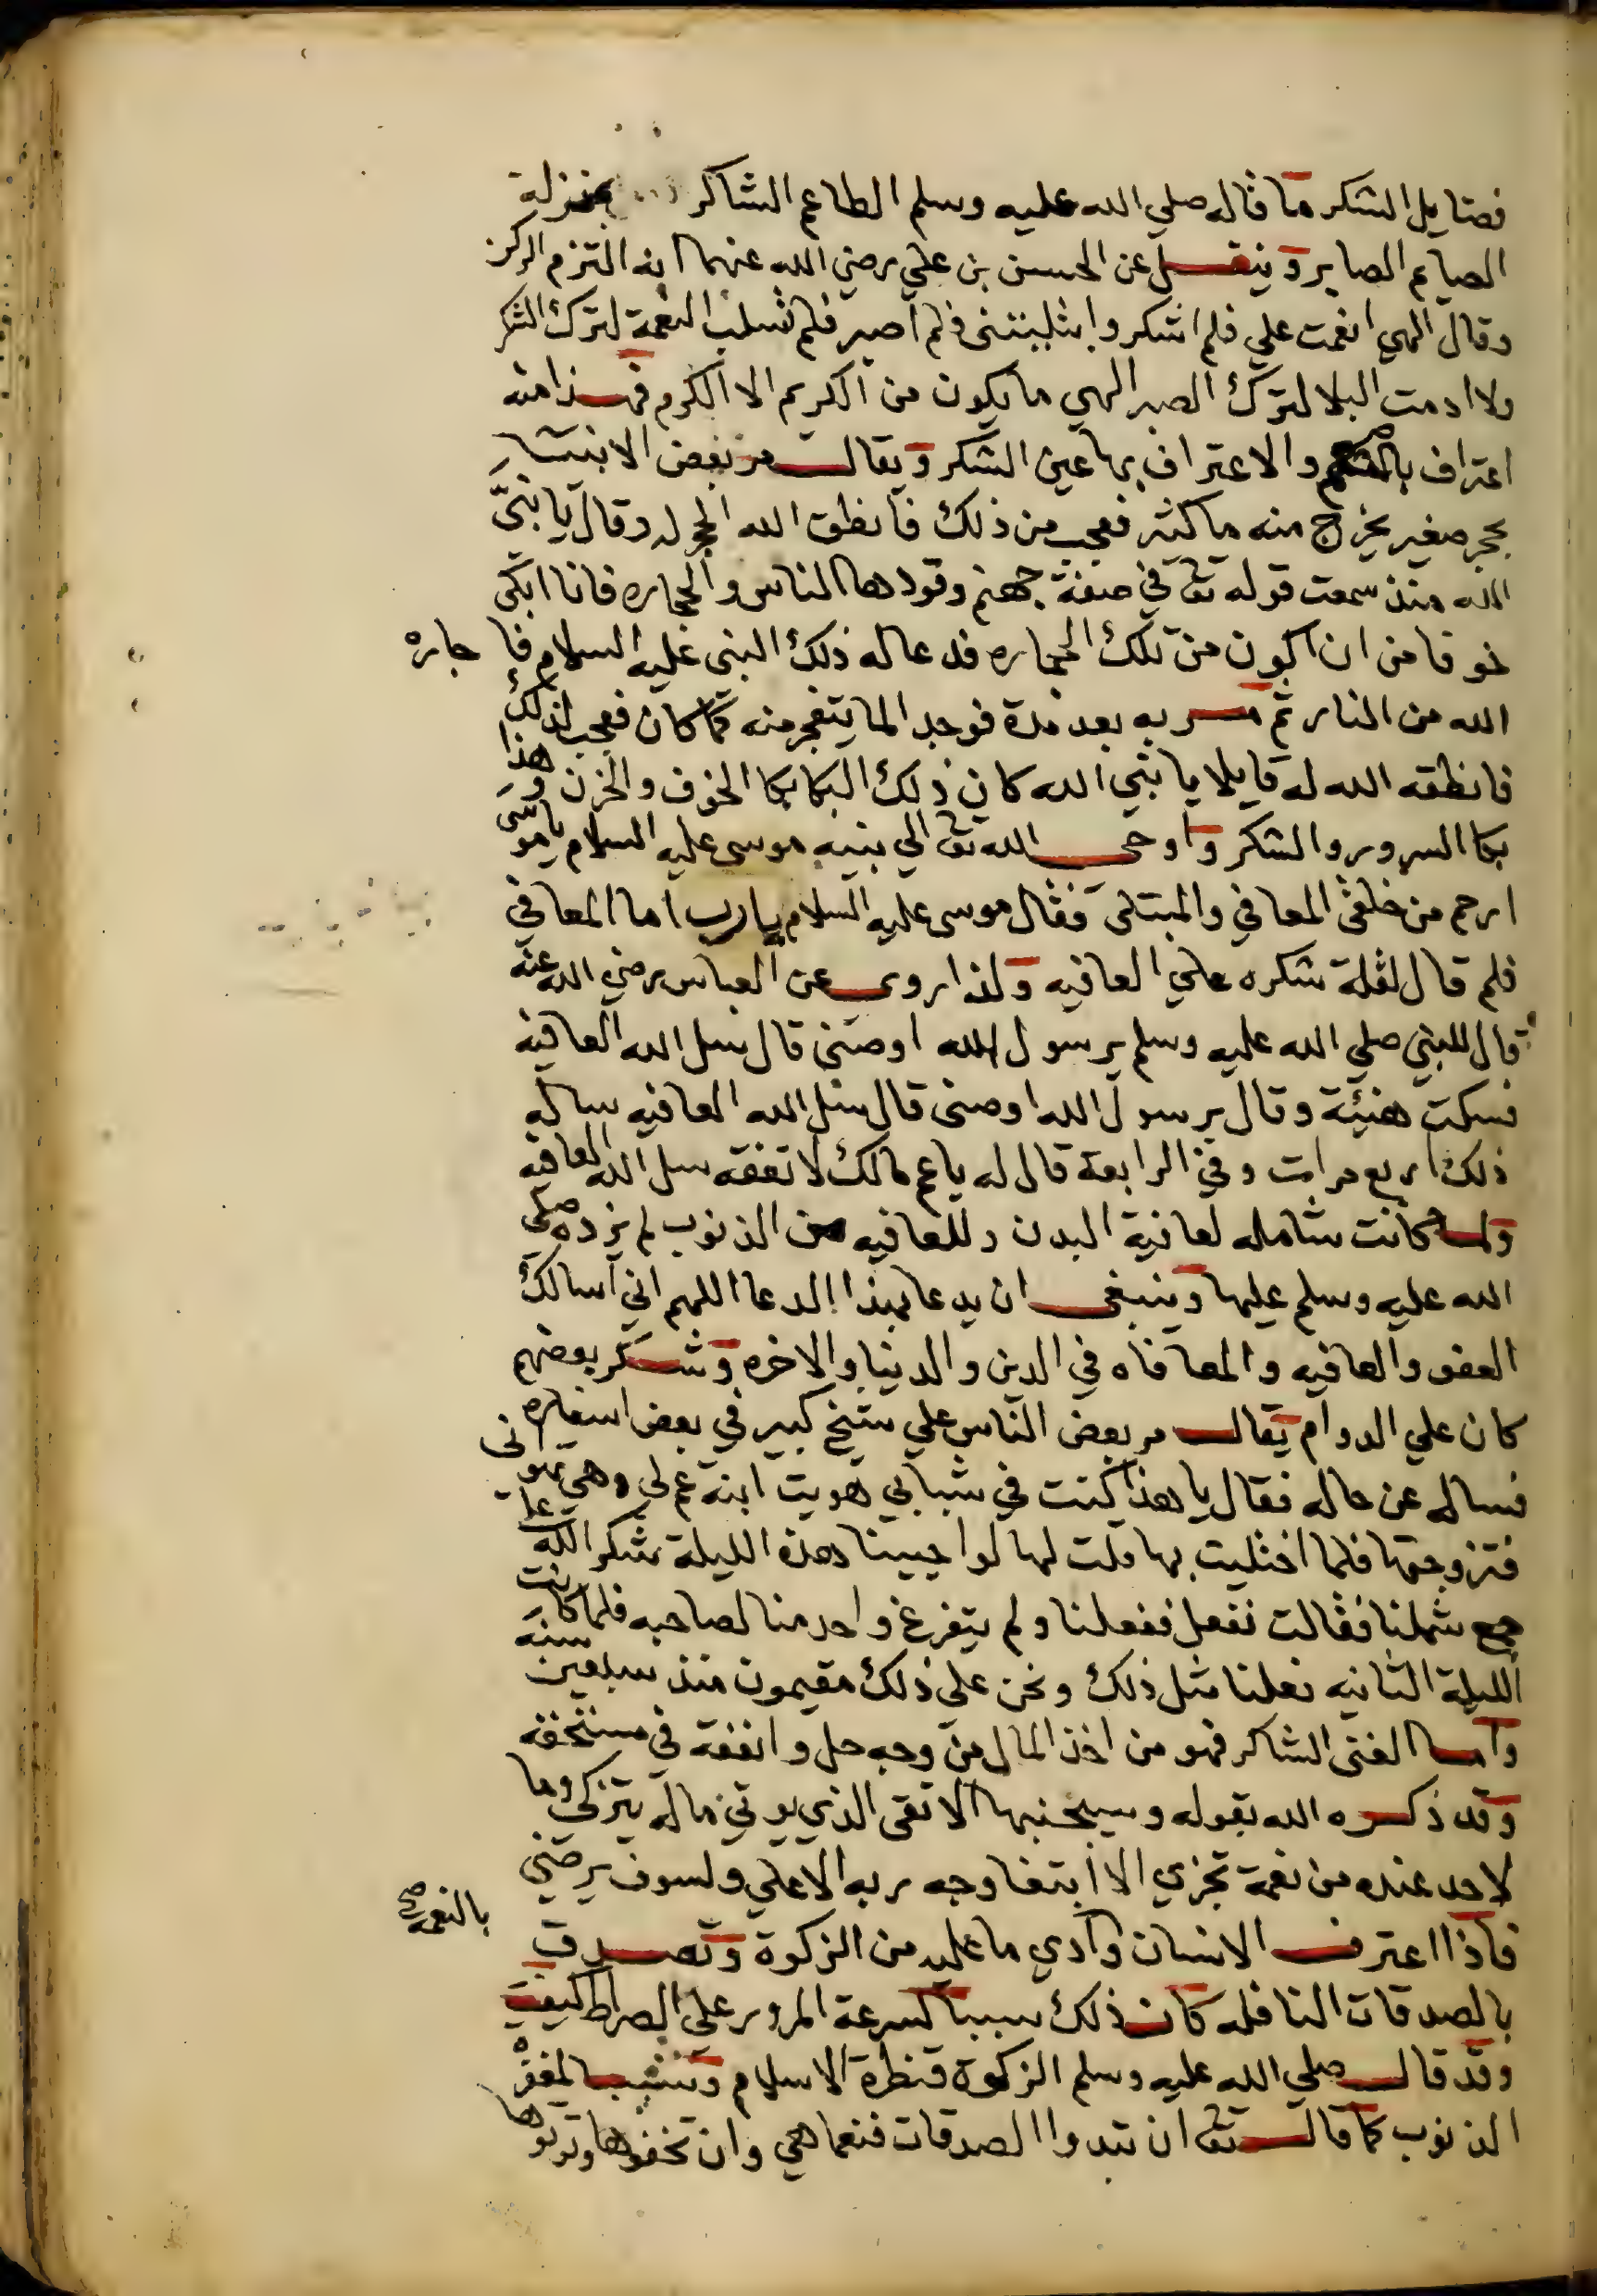 فضايل الشكر ما قاله صلي الله عليه وسلم الطاعم الشاكر بمنزلة
الصايم الصابر وينقل عن الحسن بن علي رضي الله عنهما انه التزم الركن
وقال الهي انعمت علي فلم اشكر وابتليتنى فلم اصبر فلم تسلب النعمة لترك الشكر
ولا ادمت البلا لترك الصبر الهي ما يكون من الكريم الا الكرم فهذا منه
اعتراف بالنعم والاعتراف بها عين الشكر ويقال مر بعض الانبياء
بحجر صغير يخرج منه ما كثير فعجب من ذلك فانطق الله الحجر له وقال يا نبيّ
الله منذ سمعت قوله تعالى في صفة جهنم وقودها الناس والحجاره فانا ابكى
خوفا من ان اكون من تلك الحجاره فدعا له ذلك النبى عليه السلام فا جاره
الله من النار ثم مر به بعد مدة فوجد الما يتفجر منه كما كان فعجب لذلك
فانطقه الله له قايلا يا نبي الله كان ذلك البكا بكا الخوف والحزن وهذا
بكا السرور والشكر واوحى الله تعالى الي نبيه موسى عليه السلام يا موسى
ارحم من خلقى المعافي والمبتلى فقال موسى عليه السلام يا رب اما المعافي
فلم قال لقلة شكره علي العافيه ولذا روى عن العباس رضي الله عنه
قال للنبي صلي الله عليه وسلم يرسول الله اوصنى قال سل الله العافيه
فسكت هنيئة وقال يرسول الله اوصنى قال سل الله العافيه ساله
ذلك اربع مرات وفي الرابعة قال له يا عم مالك لا تفقه سل الله العافيه
ولما كانت شامله لعافية البدن وللعافيه من الذنوب لم يزده صلى
الله عليه وسلم عليها وينبغى ان يدعا بهذا الدعا اللهم اني اسالك
العفو والعافيه والمعافاه في الدين والدنيا والاخره وشكر بعضهم
كان علي الدوام يقال مر بعض الناس علي شيخ كبير في بعض اسفاره
فساله عن حاله فقال يا هذا كنت في شبابي هويت ابنة عم لي وهي تهوانى
فتزوجتها فلما اختليت بها قلت لها لو احيينا هذه الليلة شكرا لله على
جمع شملنا فقالت نفعل ففعلنا ولم يتفرغ واحد منا لصاحبه فلما كانت
الليلة الثانيه فعلنا مثل ذلك ونحن على ذلك مقيمون منذ سبعين سنه
واما الغنى الشاكر فهو من اخذ المال من وجه حل وانفقه في مستحقه
وقد ذكره الله بقوله وسيجنبها الاتقى الذي يوتي ماله يتزكى وما
لاحد عنده من نعمة تجزي الا ابتغا وجه ربه الاعلي ولسوف يرضي
فاذا اعترف الانسان بالنعمه صح وادي ما عليه من الزكوة وتصدق
بالصدقات النافله كان ذلك سببا لسرعة المرور علي الصراط كيف
وقد قال صلي الله عليه وسلم الزكوة قنطرة الاسلام وتسبب لمغفرة
الذنوب كما قال تعالى ان تبدوا الصدقات فنعما هي وان تخفوها وتوتوها